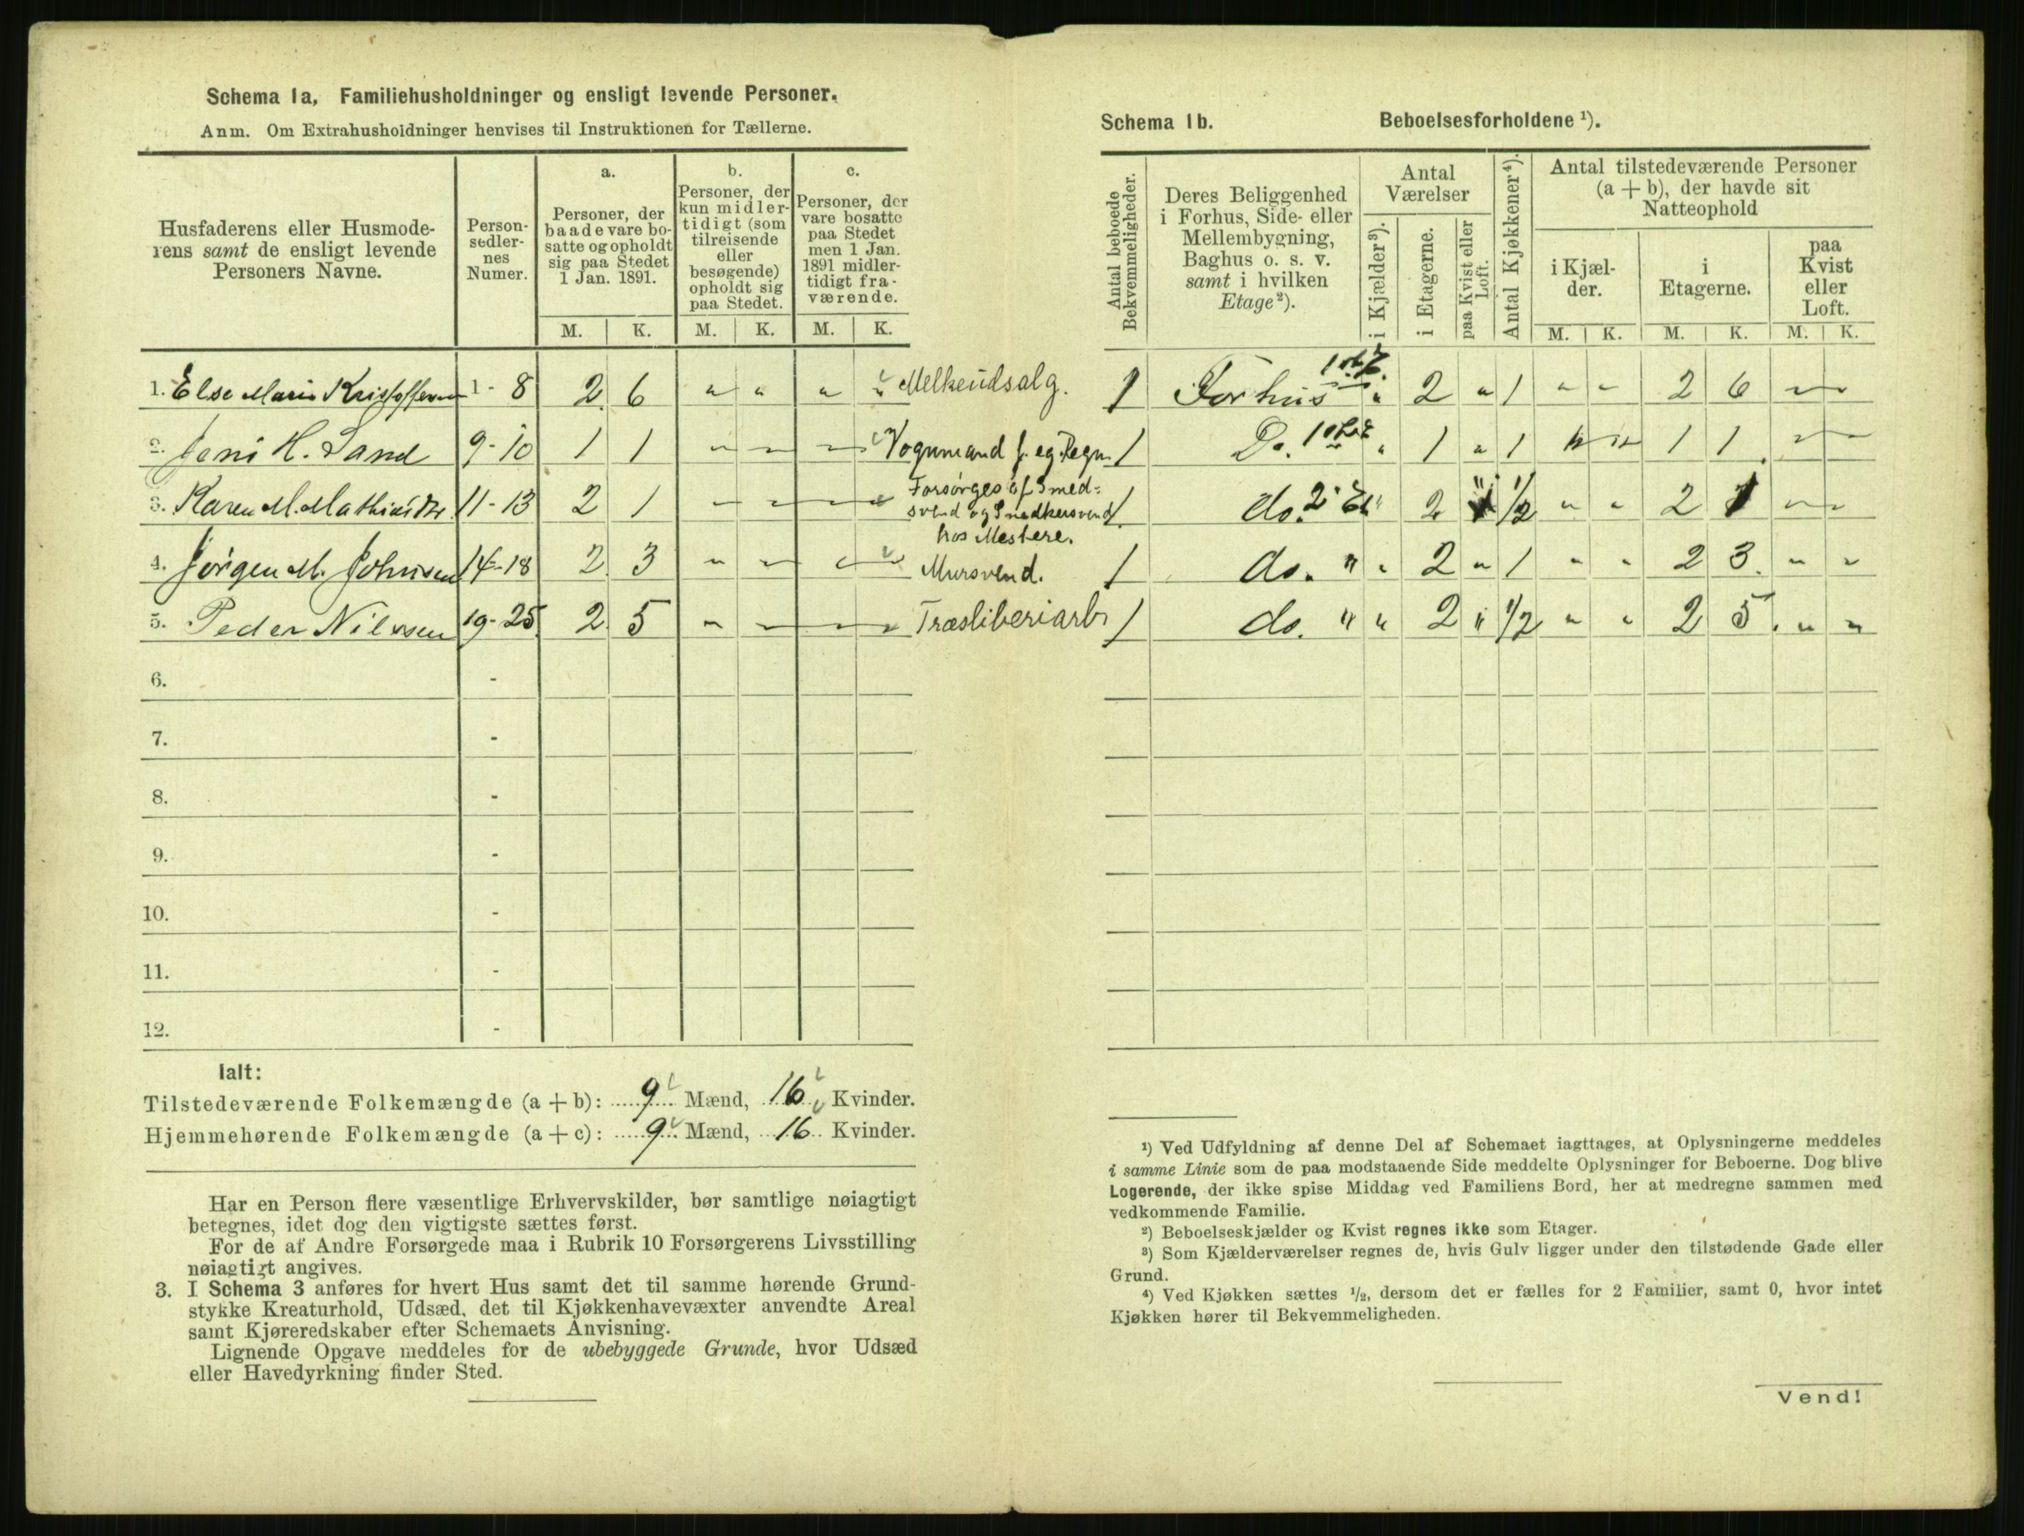 Schema 1a, Familiehusholdninger og ensligt levende Personer.
Anm. Om Extrahusholdninger henvises til Instruktionen for Tællerne.
Husfaderens eller Husmode-
rens samt de ensligt levende
Personers Navne.
Person-
sedler-
nes
Numer.
a.
Personer, der
baade vare bo-
satte og opholdt
sig paa Stedet
1 Jan. 1891.
b.
Personer, der
kun midler-
tidigt (som
tilreisende
eller
besøgende)
opholdt sig
paa Stedet.
c.
Personer, der
vare bosatte
paa Stedet
men 1 Jan.
1891 midler-
tidigt fra-
værende.
M. K. M. K. M. K.
1. Else Marie Kristoffersen 1 - 8 2 6 " " " " Melkeudsalg.
2. Jens H. Sand 9 - 10 1 1 " " " Vognmand f. eg. Regn
3. Karen M. Mathisdtr 11 - 13 2 1 " " " " Forsørges af Smed-
svend og Snedkersvend
hos Mestere.
4. Jørgen M. Johnsen 14 - 18 2 3 " " " " Mursvend.
5. Peder Nilssen 19 - 25 2 5 " " " " Træsliberiarb
6. -
7. -
8. -
9. -
10. -
11. -
12. -
Ialt:
Tilstedeværende Folkemængde (a + b): 9 Mænd, 16 Kvinder.
Hjemmehørende Folkemængde (a + c): 9 Mænd, 16 Kvinder.
Har en Person flere væsentlige Erhvervskilder, bør samtlige nøiagtigt
betegnes, idet dog den vigtigste sættes først.
For de af Andre Forsørgede maa i Rubrik 10 Forsørgerens Livsstilling
nøiagtigt angives.
3. I Schema 3 anføres for hvert Hus samt det til samme hørende Grund-
stykke Kreaturhold, Udsæd, det til Kjøkkenhavevæxter anvendte Areal
samt Kjøreredskaber efter Schemaets Anvisning.
Lignende Opgave meddeles for de ubebyggede Grunde, hvor Udsæd
eller Havedyrkning finder Sted.
Schema 1b. Beboelsesforholdene ¹).
Antal beboede
Bekvemmeligheder.
Deres Beliggenhed
i Forhus, Side- eller
Mellembygning,
Baghus o. s. v.
samt i hvilken
Etage²).
Antal
Værelser
i Kjælder³).
i Etagerne.
paa Kvist eller
Loft.
Antal Kjøkkener⁴).
Antal tilstedeværende Personer
(a + b), der havde sit
Natteophold
i Kjæl-
der.
i
Etagerne.
paa
Kvist
eller
Loft.
M. K. M. K. M. K.
1 Forhus " 2 " 1 " " 2 6 " "
1 Do. " 1 " 1 " " 1 1 " "
1 do. 2 Et " 2 " 1/2 " " 2 1 " "
1 do. " " 2 " 1 " " 2 3 " "
1 do. " " 2 " 1/2 " " 2 5 " "
¹) Ved Udfyldning af denne Del af Schemaet iagttages, at Oplysningerne meddeles
i samme Linie som de paa modstaaende Side meddelte Oplysninger for Beboerne. Dog blive
Logerende, der ikke spise Middag ved Familiens Bord, her at medregne sammen med
vedkommende Familie.
²) Beboelseskjælder og Kvist regnes ikke som Etager.
³) Som Kjælderværelser regnes de, hvis Gulv ligger under den tilstødende Gade eller
Grund.
⁴) Ved Kjøkken sættes ¹/₂, dersom det er fælles for 2 Familier, samt 0, hvor intet
Kjøkken hører til Bekvemmeligheden.
Vend!